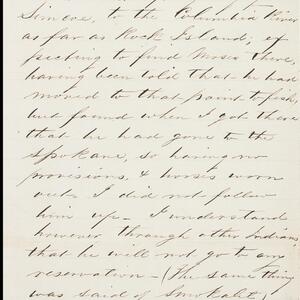 Simcoe, to the Columbia River
as far as Rock Island, ex
pecting to find Moses there,
having been told that he had
moved to that point to fish,
but found when I got there
that he had gone to the
Spokane, so having no
provisions, & horses worn
out, I did not follow
him up - I understand
however through other Indians
that he will not go to any
reservation - (The same thing
was said of Smokalet